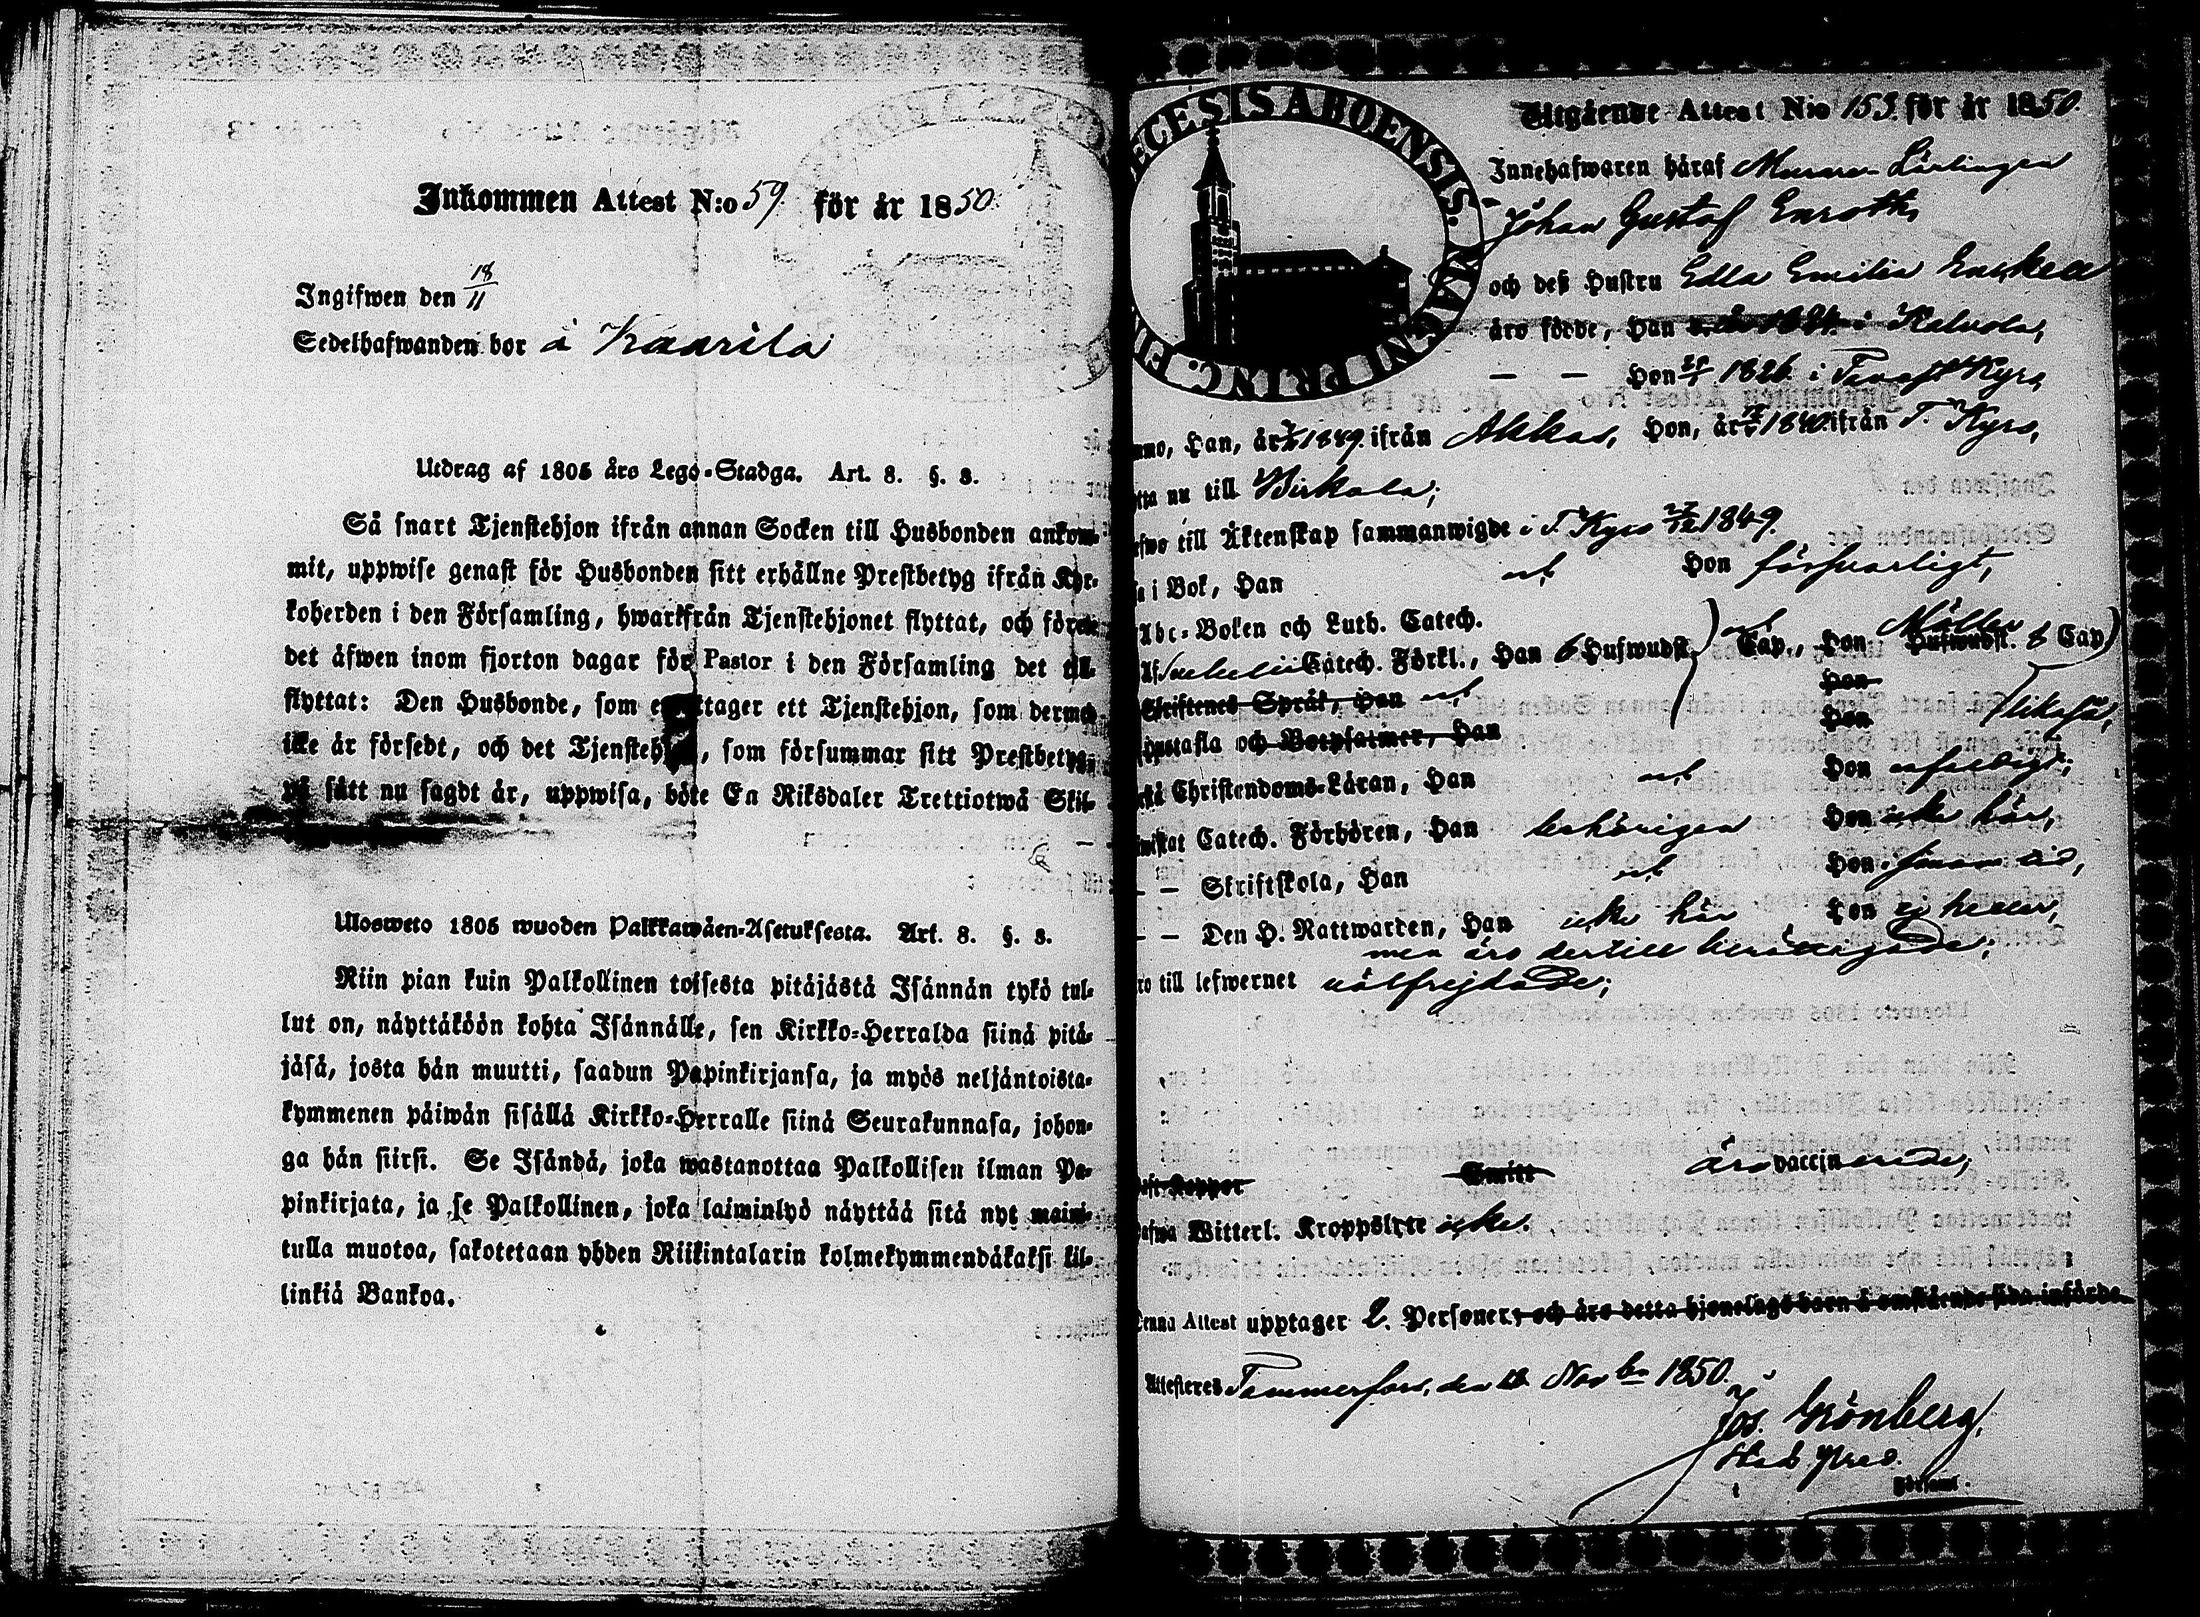 Inkommen Attest N:o 59. för år 1850.
Ingifwen den 18/11
Sedelhafwanden bor å Kaarila
Utdrag af 1805 års Lego-Stadga. Art. 8. §. 3.
Så snart Tjenstehjon ifrån annan Socken till Husbonden ankom-
mit, uppwise genast för Husbonden sitt erhållne Prestbetyg ifrån Kyr-
koherden i den Församling, hwarifrån Tjenstehjonet flyttat, och förete
det äfwen inom fjorton dagar för Pastor i den Församling det till-
flyttat: Den Husbonde, som ettager ett Tjenstehjon, som dermed
icke är försedt, och det Tjenstehjon, som försummar sitt Prestbetyg,
på sätt nu sagdt är, uppwisa, böte En Riksdaler Trettiotwå Skil-
Ulosweto 1805 wuoden Palkkawäen-Asetuksesta. Art. 8. §. 3.
Niin pian kuin Palkollinen toisesta pitäjästä Isännän tykö tul-
lut on, näyttäköön kohta Isännälle, sen Kirkko-Herralda siinä pitä-
jäsä, josta hän muutti, saadun Papinkirjansa, ja myös neljäntoista-
kymmenen päiwän sisällä Kirkko-Herralle siinä Seurakunnasa, johon-
ga hän siirsi. Se Isändä, joka wastanottaa Palkollisen ilman Pa-
pinkirjata, ja se Palkollinen, joka laiminlyö näyttää sitä nyt maini-
tulla muotoa, sakotetaan yhden Riikintalarin kolmekymmendäkaksi kil-
linkiä Bankoa.
ECESIS ABOENSIS. MAGNI PRINC. FIN
Utgående Attest N:o 155. för år 1850.
Innehafwaren häraf Murare Lärlingen
Johan Gustaf Enroth,
och deß Hustru Edla Emilia Enckell
äro födde, Han i Kalvola,
— — Hon 1826. i Tavastkyro,
Han, år 1849. ifrån Akkas, Hon, år 1840. ifrån T. Kyro,
nu till Birkala;
till Äktenskap sammanwigde i T. Kyro 1849.
i Bok, Han ock Hon försvarligt,
Abc-Boken och Luth. Catech.
Af Svebelii Catech. Förkl., Han 6 Hufwudst. Cap., Hon Hufwudst. Cap
Skriftenes Språk, Han Hon
Hustafla och Botpsalmer, Han Hon likaså,
Christendoms-Läran, Han Hon
Catech. Förhören, Han behörigen Hon icke här,
— — Skriftskola, Han Hon i sinom tid,
— — Den H. Nattwarden, Han icke här Hon ej heller,
men äro dertill berättigade;
till lefwernet välfrejdade;
Koppor Smitt äro vaccinerade;
Witterl. Kroppslyte icke.
Denna Attest upptager 2. Personer, och äro detta hjonelags barn å omstående sida införde.
Attesteres Tammerfors, den Novbr 1850.
Jos. Grönberg,
Församl.